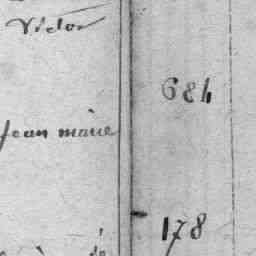 Victor
684
Jean marie
178